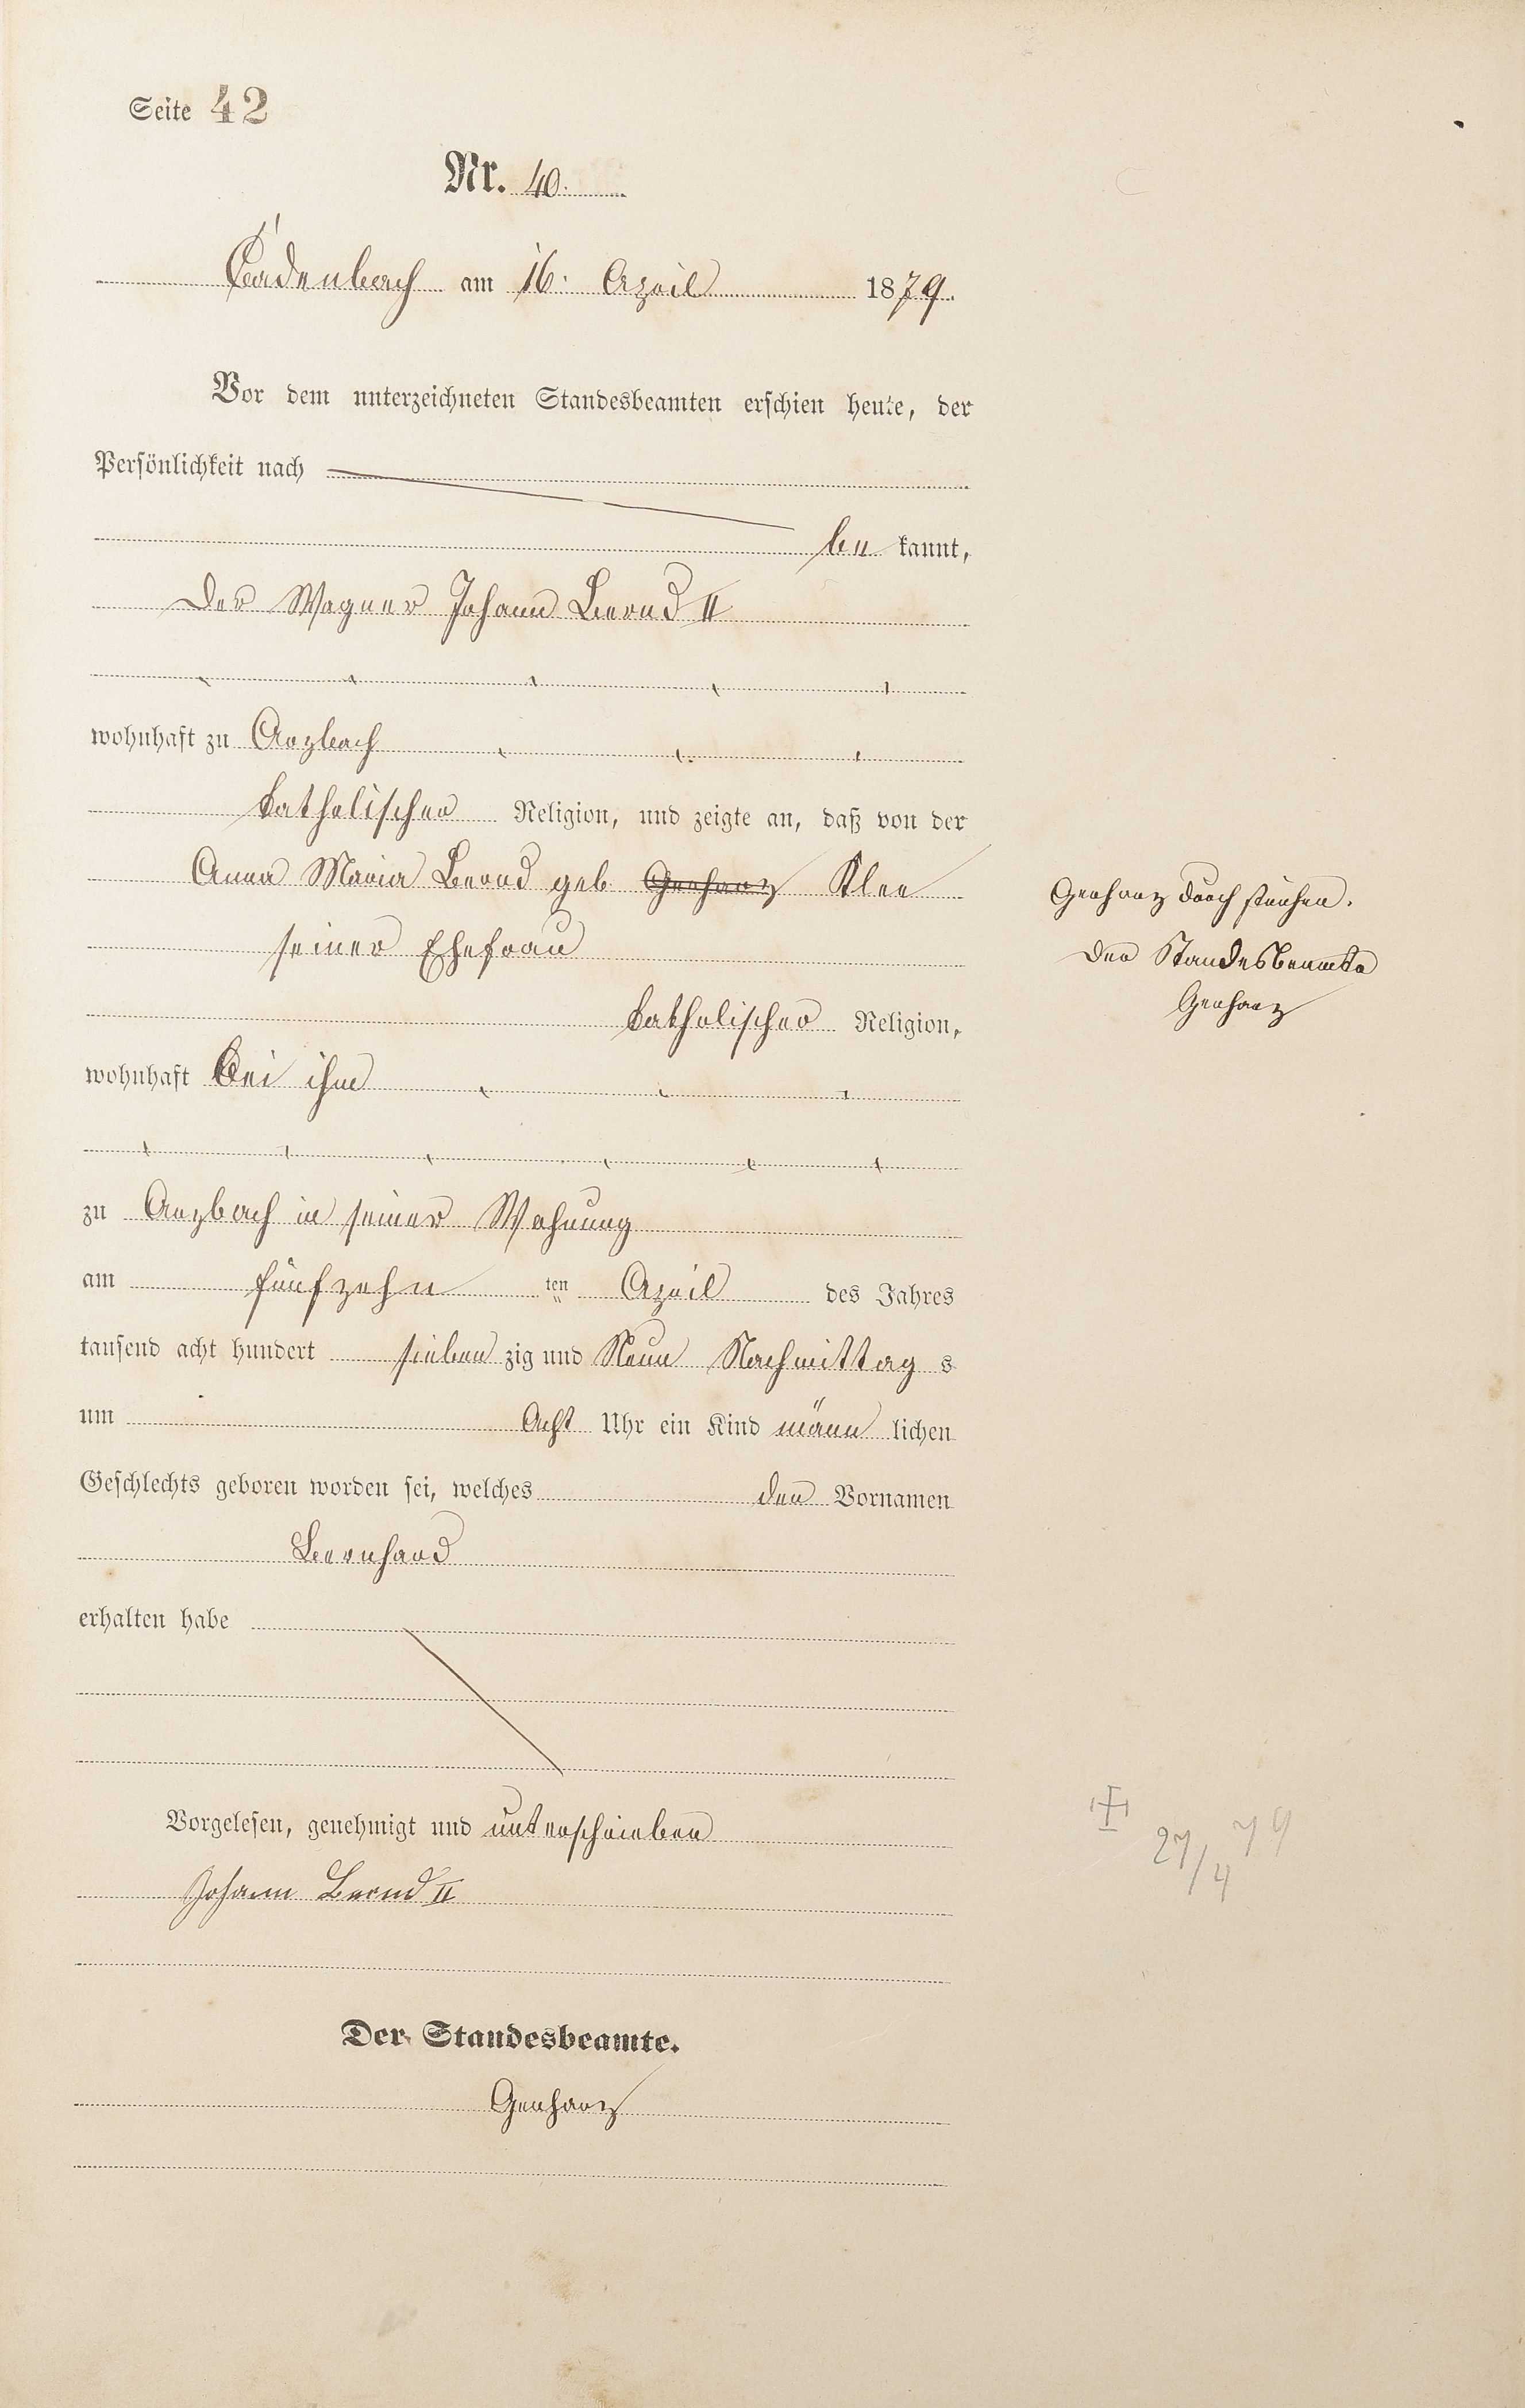 Seite 42
Nr. 40.
Cadenbach am 16. April 1879.
Vor dem unterzeichneten Standesbeamten erschien heute, der
Persönlichkeit nach
be kannt,
der Wagner Johann Bernd II
wohnhaft zu Arzbach
katholischer Religion, und zeigte an, daß von der
Anna Maria Bernd geb Gerharz Klee
seiner Ehefrau
katholischer Religion,
wohnhaft bei ihm
zu Arzbach in seiner Wohnung
am fünfzehn ten April des Jahres
tausend acht hundert sieben zig und Neun Nachmittag s
um Acht Uhr ein Kind männ lichen
Geschlechts geboren worden sei, welches den Vornamen
Bernhard
erhalten habe
Vorgelesen, genehmigt und unterschrieben
Johann Bernd II
Der Standesbeamte.
Gerharz
Gerharz durch
Der Standesbeamte
Gerharz
27/4 79